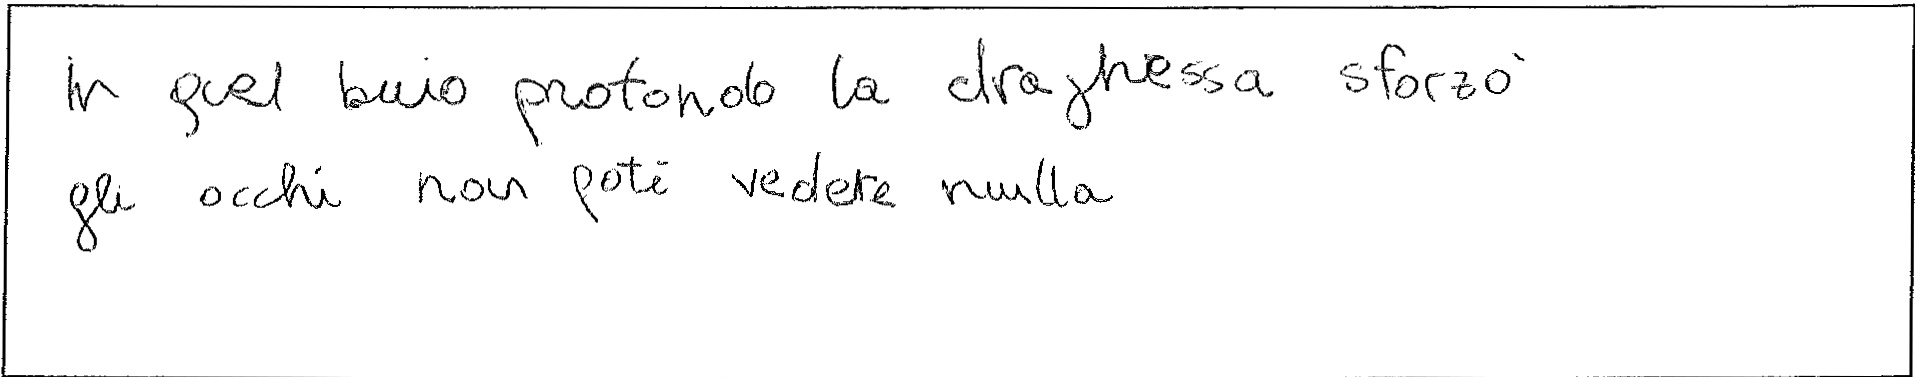 In quel buio profondo la draghessa sforzò
gli occhi non poté vedere nulla